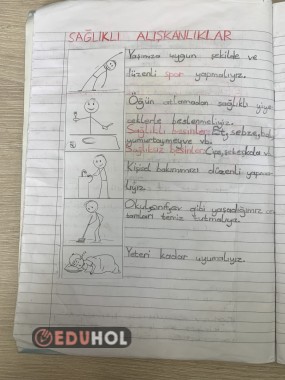 SAĞLIKLI ALIŞKANLIKLAR
Yaşımıza uygun şekilde ve
düzenli spor yapmalıyız.
Öğün atlamadan sağlıklı yiye
ceklerle beslenmeliyiz.
Sağlıklı besinler: Et, sebze, balık
yumurta, meyve vb.
Sağlıksız besinler: Cips, çikolata v
Kişisel bakımımızı düzenli yapma
lıyız.
gibi yaşadığımız or
tamları temiz tutmalıyız.
Yeteri kadar uyumalıyız.
EDUHOL